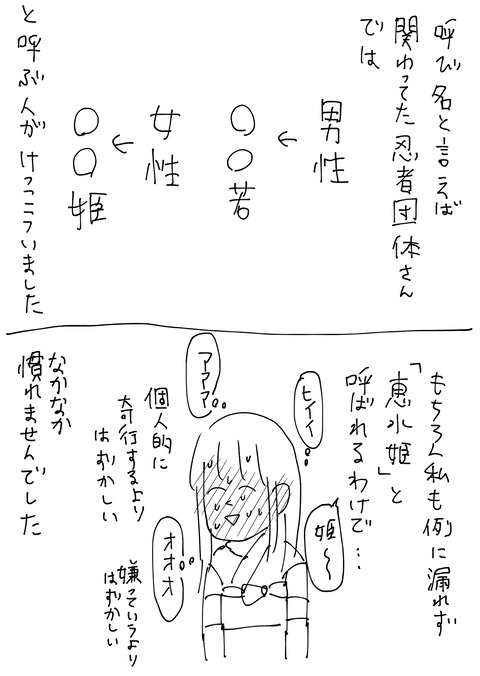 呼び名と言えば
関わってた忍者団体さん
では
男性
↓
○○若
女性
↓
○○姫
と呼ぶ人がけっこういました
もちろん私も例に漏れず
「恵水姫」と
呼ばれるわけで…
ヒイィ
姫〜
アアアア
個人的に
奇行するより
はずかしい
オオォオ
嫌っていうより
はずかしい
なかなか
慣れませんでした